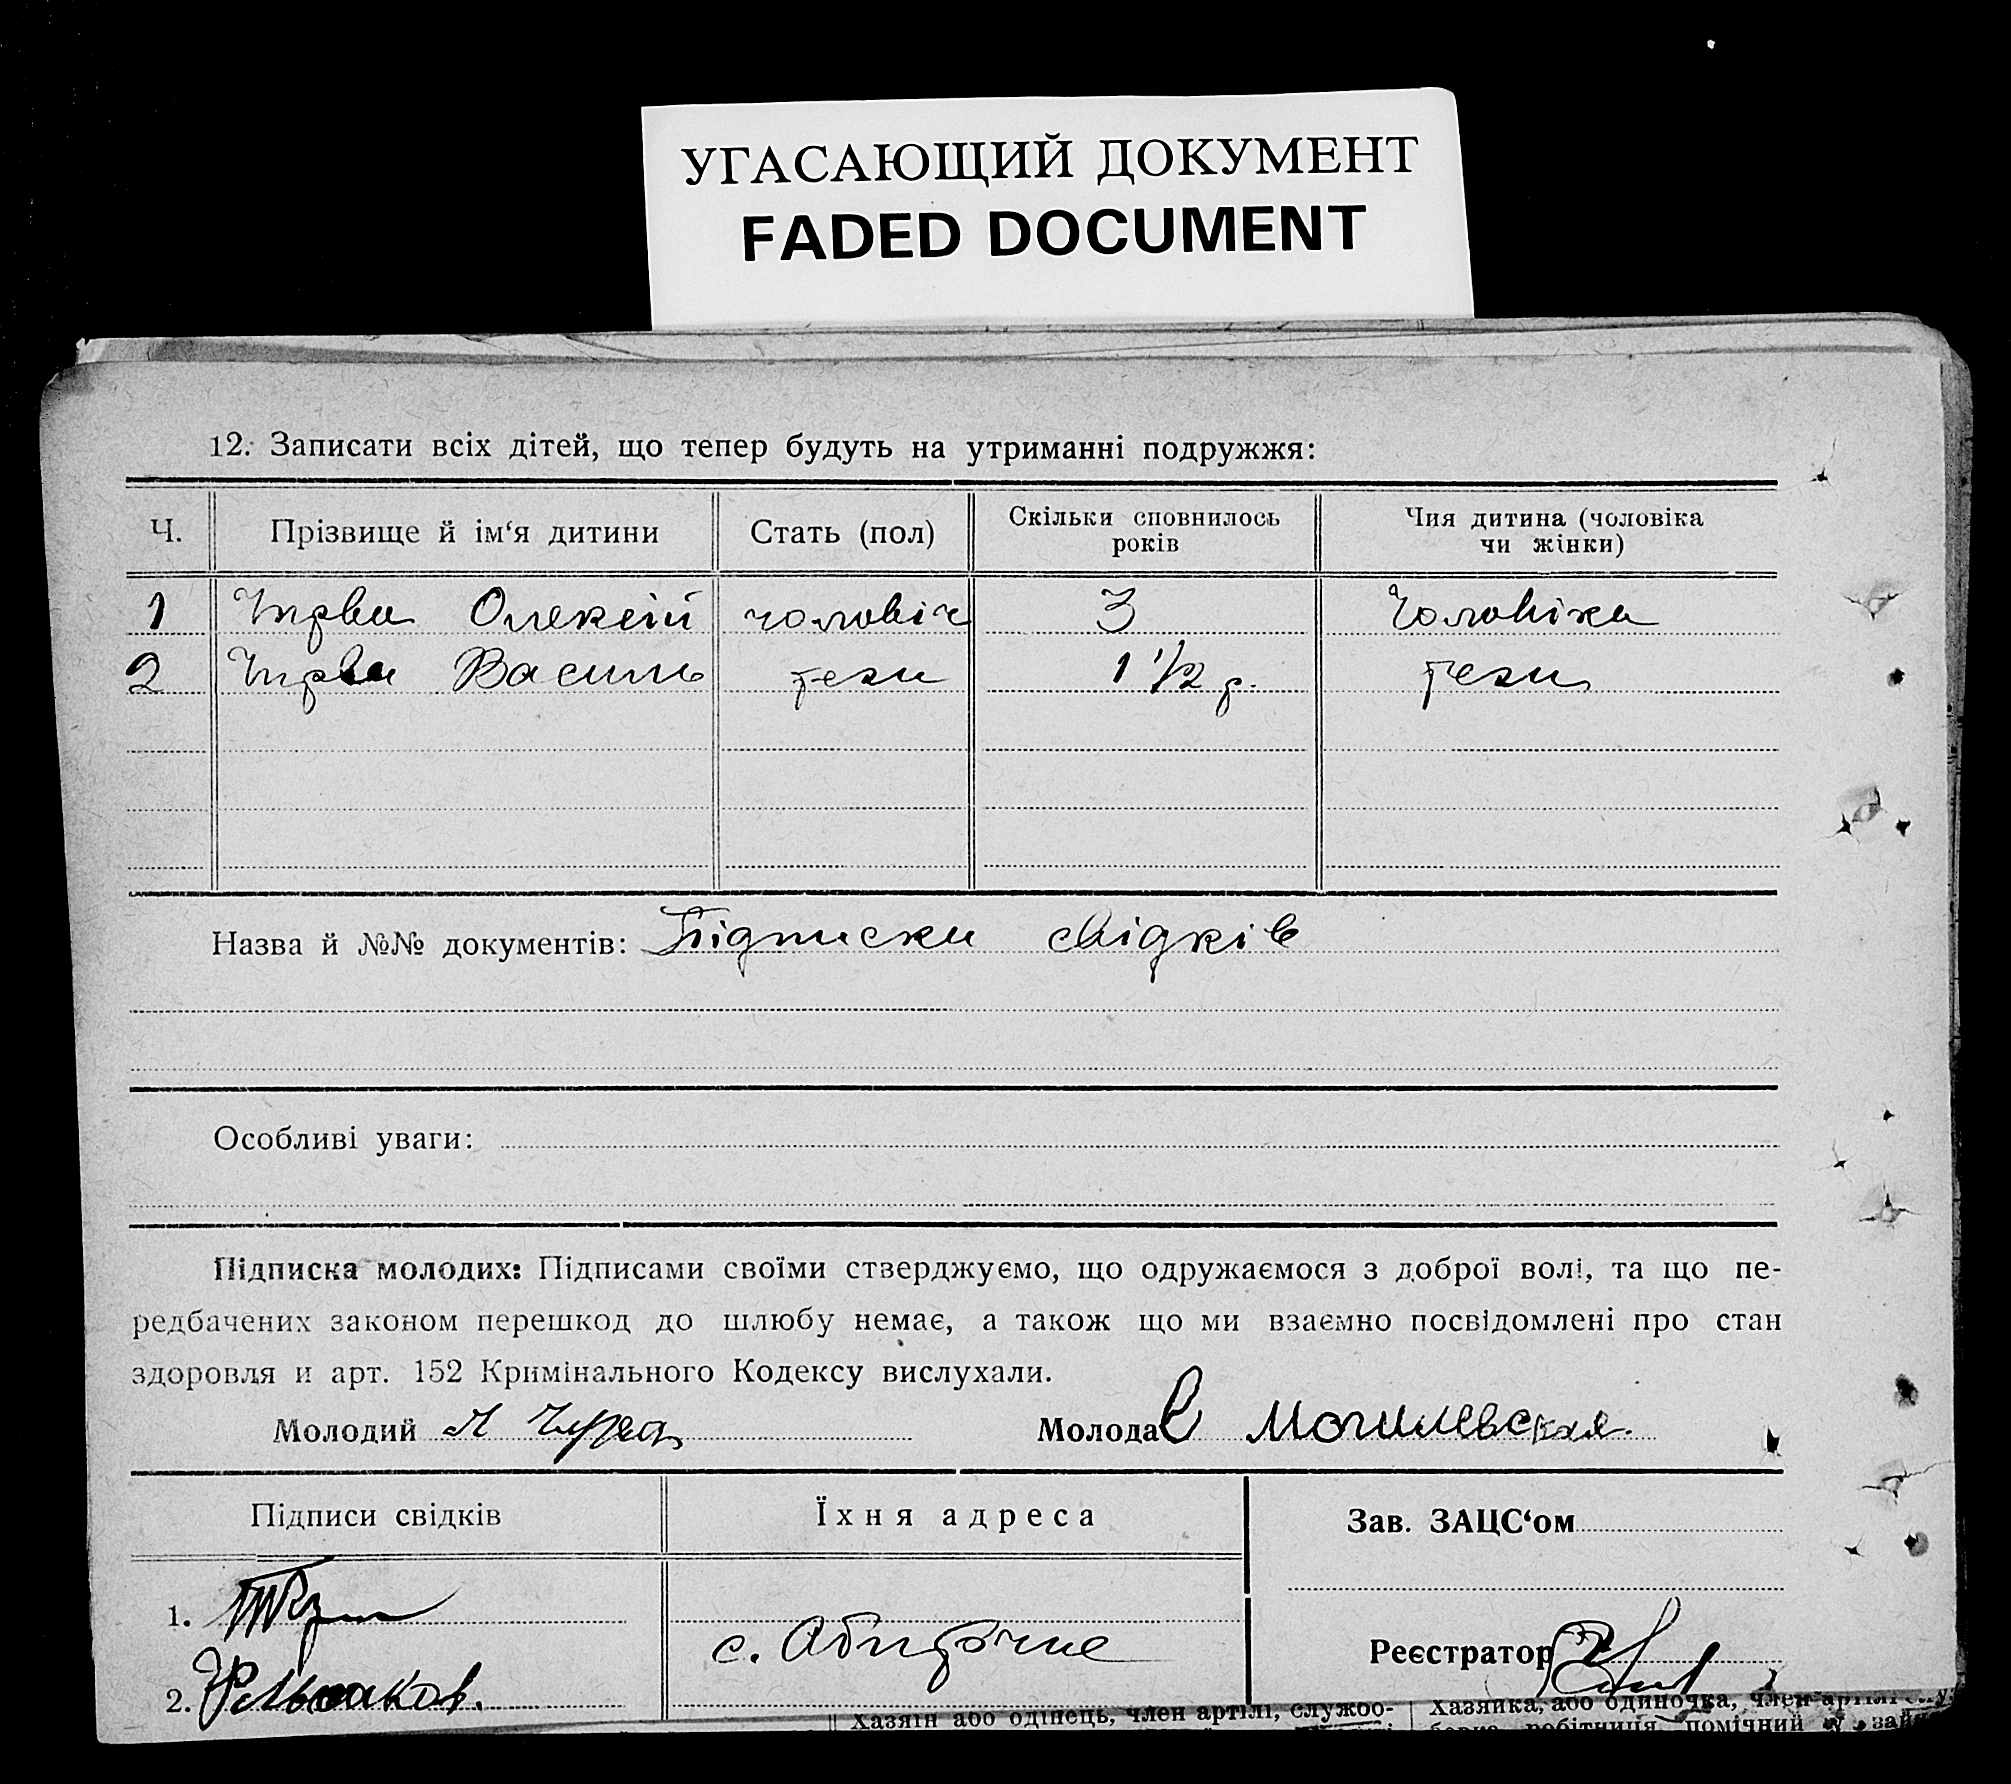 УГАСАЮЩИЙ ДОКУМЕНТ
FADED DOCUMENT
12. Записати всіх дітей, що тепер будуть на утриманні подружжя:
Ч. Прізвище й ім‘я дитини Стать (пол) Скільки сповнилось років Чия дитина (чоловіка чи жінки)
1 Олексій чоловіч 3 Чоловіка
2 Василь теж 1 1/2 р. теж
Назва й №№ документів: Підписки свідків
Особливі уваги:
Підписка молодих: Підписами своїми стверджуємо, що одружаємося з доброї волі, та що пе-
редбачених законом перешкод до шлюбу немає, а також що ми взаємно посвідомлені про стан
здоровля и арт. 152 Кримінального Кодексу вислухали.
Молодий Молода Могилевская.
Підписи свідків Їхня адреса Зав. ЗАЦС‘ом
1.
с. Реєстратор
2.
Хазяїн або одінець, член артілі, служоо- Хазяйка, або одиночка, член артілі
робітниця помічний